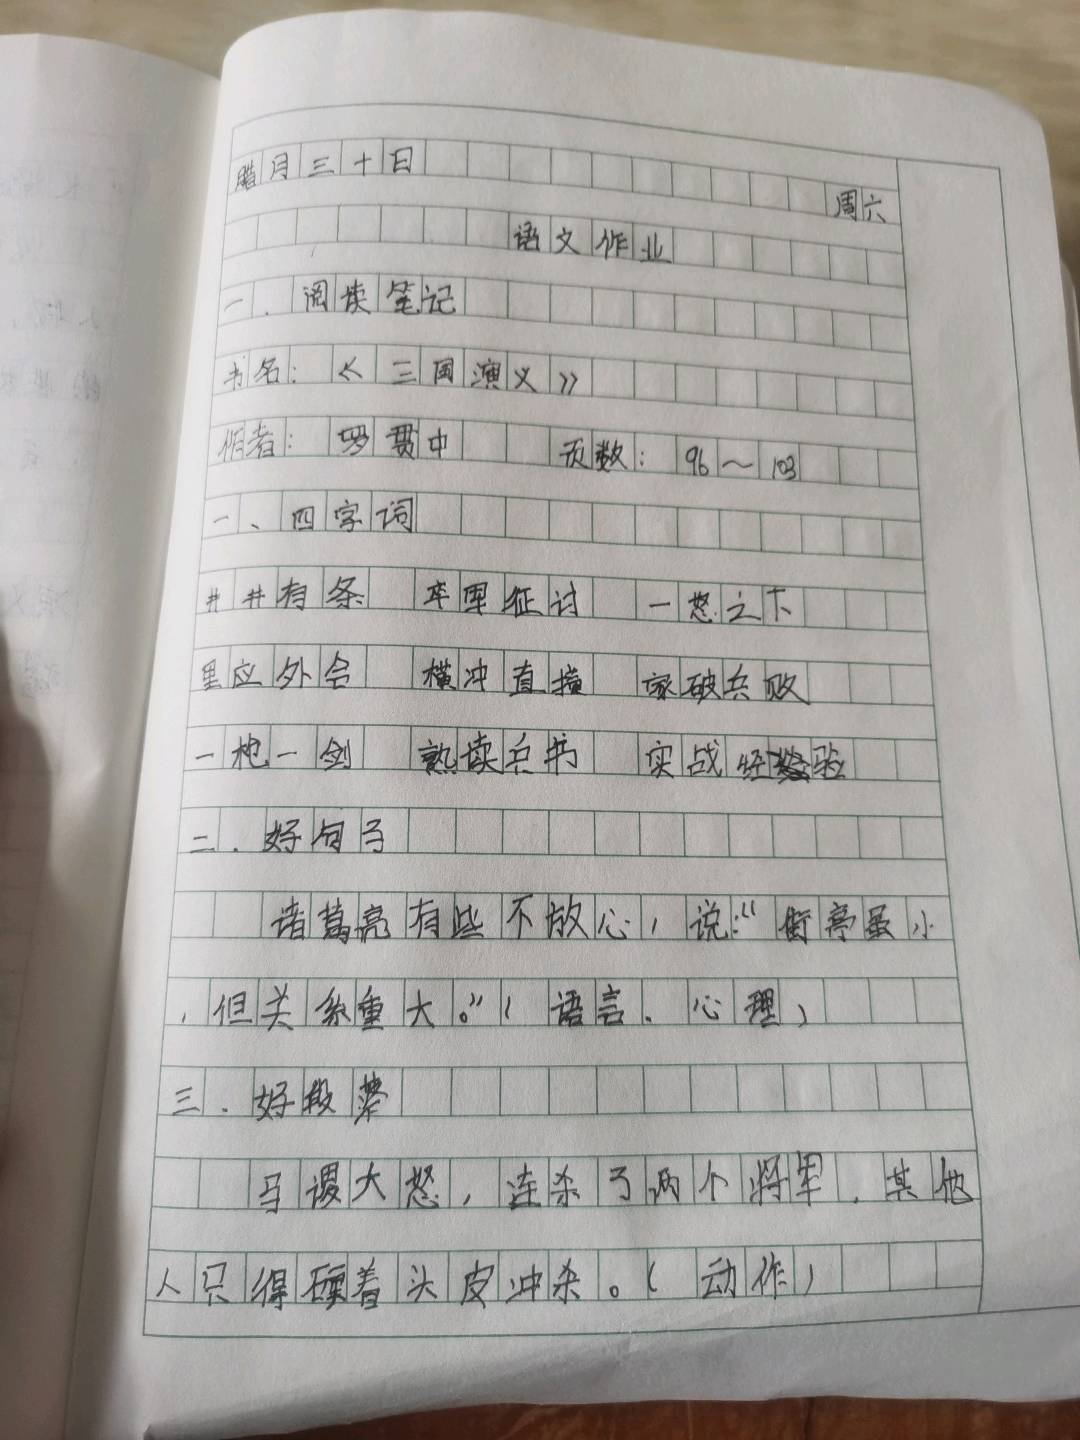 腊月三十日 周六
语文作业
一.阅读笔记
书名:《三国演义》
作者:罗贯中 页数:96~103
一、四字词
井井有条 率军征讨 一怒之下
里应外合 横冲直撞 家破兵败
一枪一剑 熟读兵书 实战经验
二.好句子
诸葛亮有些不放心,说:“街亭虽小
,但关系重大。”(语言.心理)
三.好段落
马谡大怒,连杀了两个将军.其他
人只得硬着头皮冲杀。(动作)